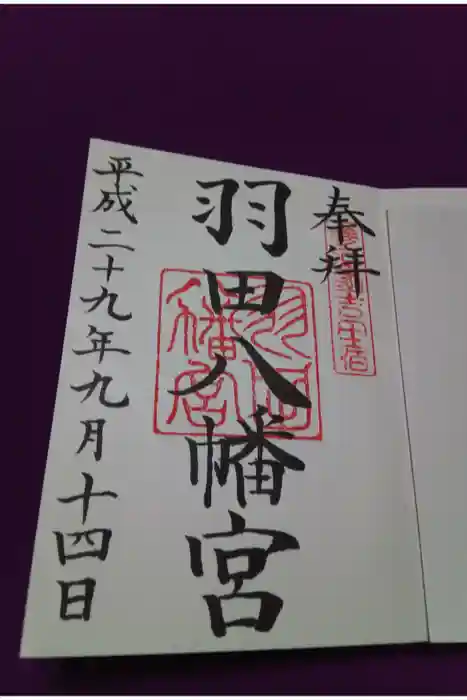 奉拝
羽田八幡宮
平成二十九年九月十四日